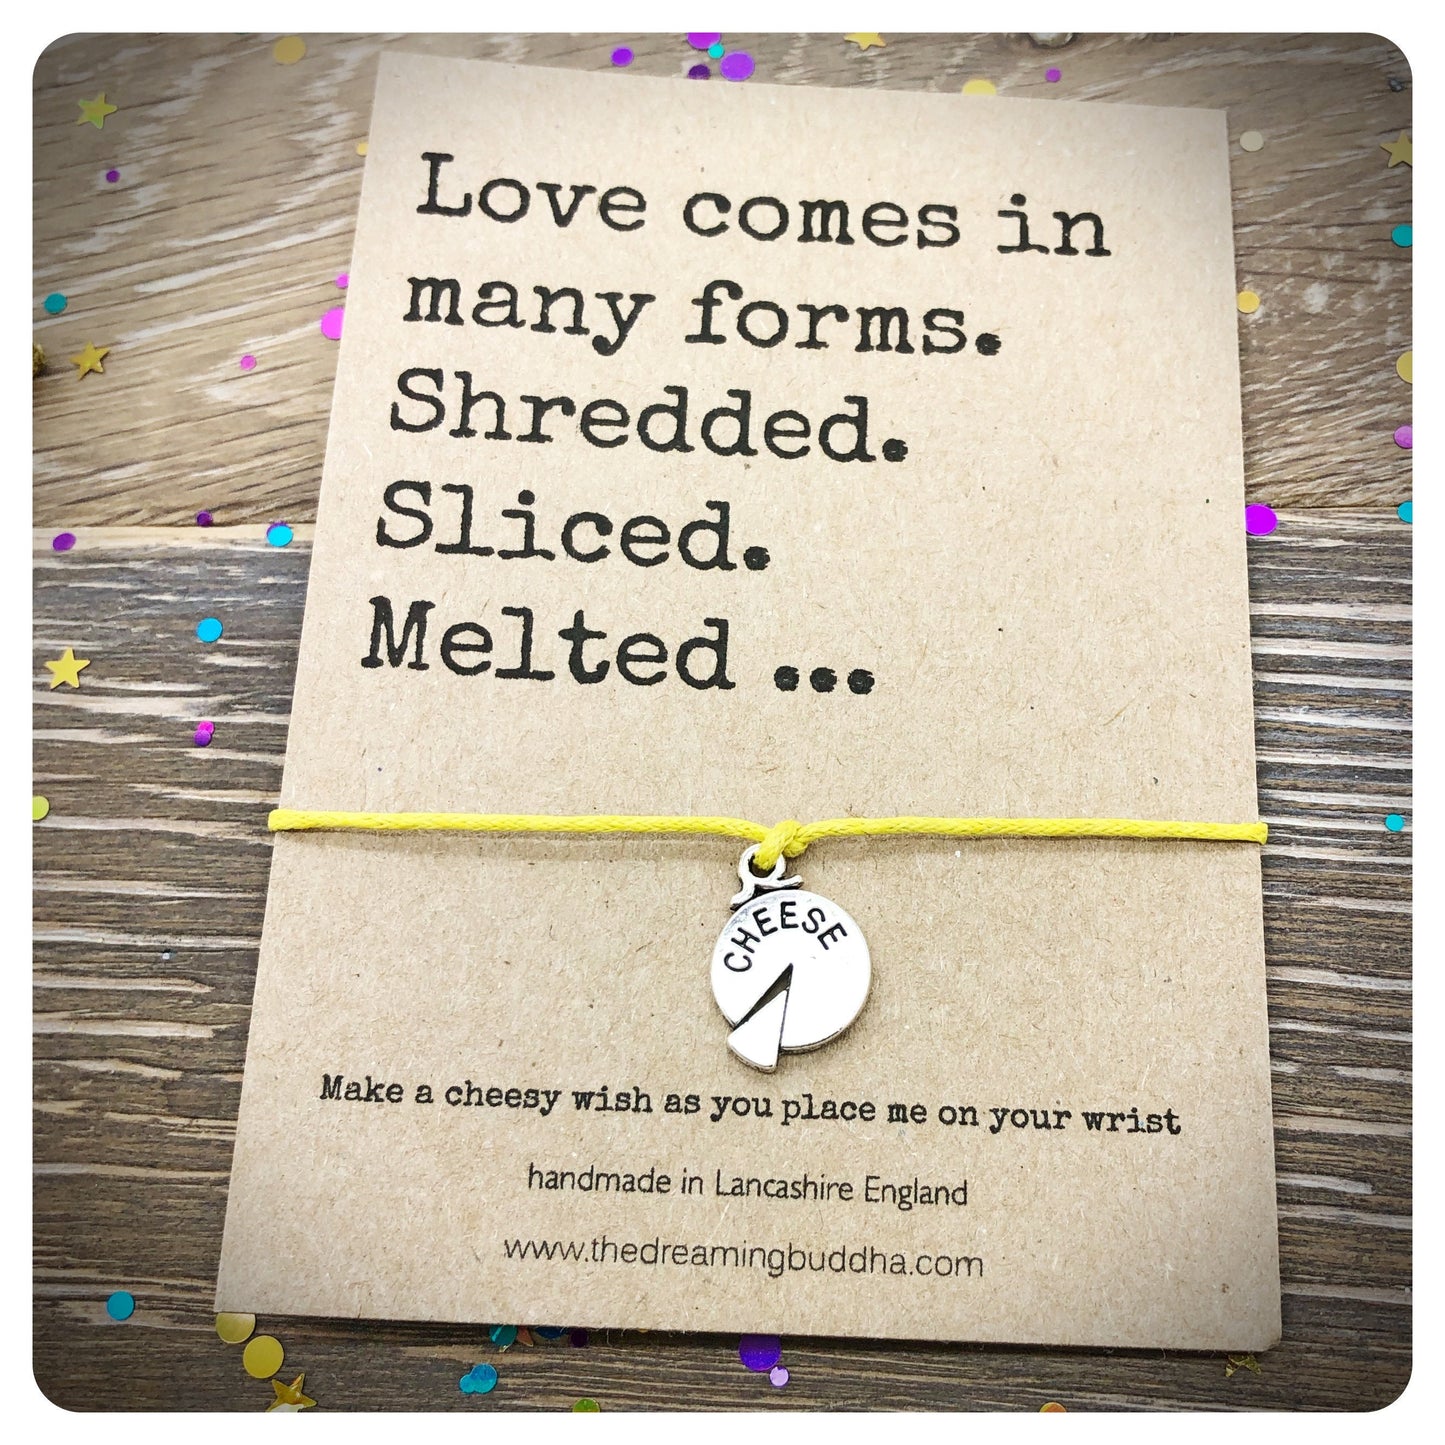 Love comes in
many forms.
Shredded.
Sliced.
Melted ...
CHEESE
Make a cheesy wish as you place me on your wrist
handmade in Lancashire England
www.thedreamingbuddha.com